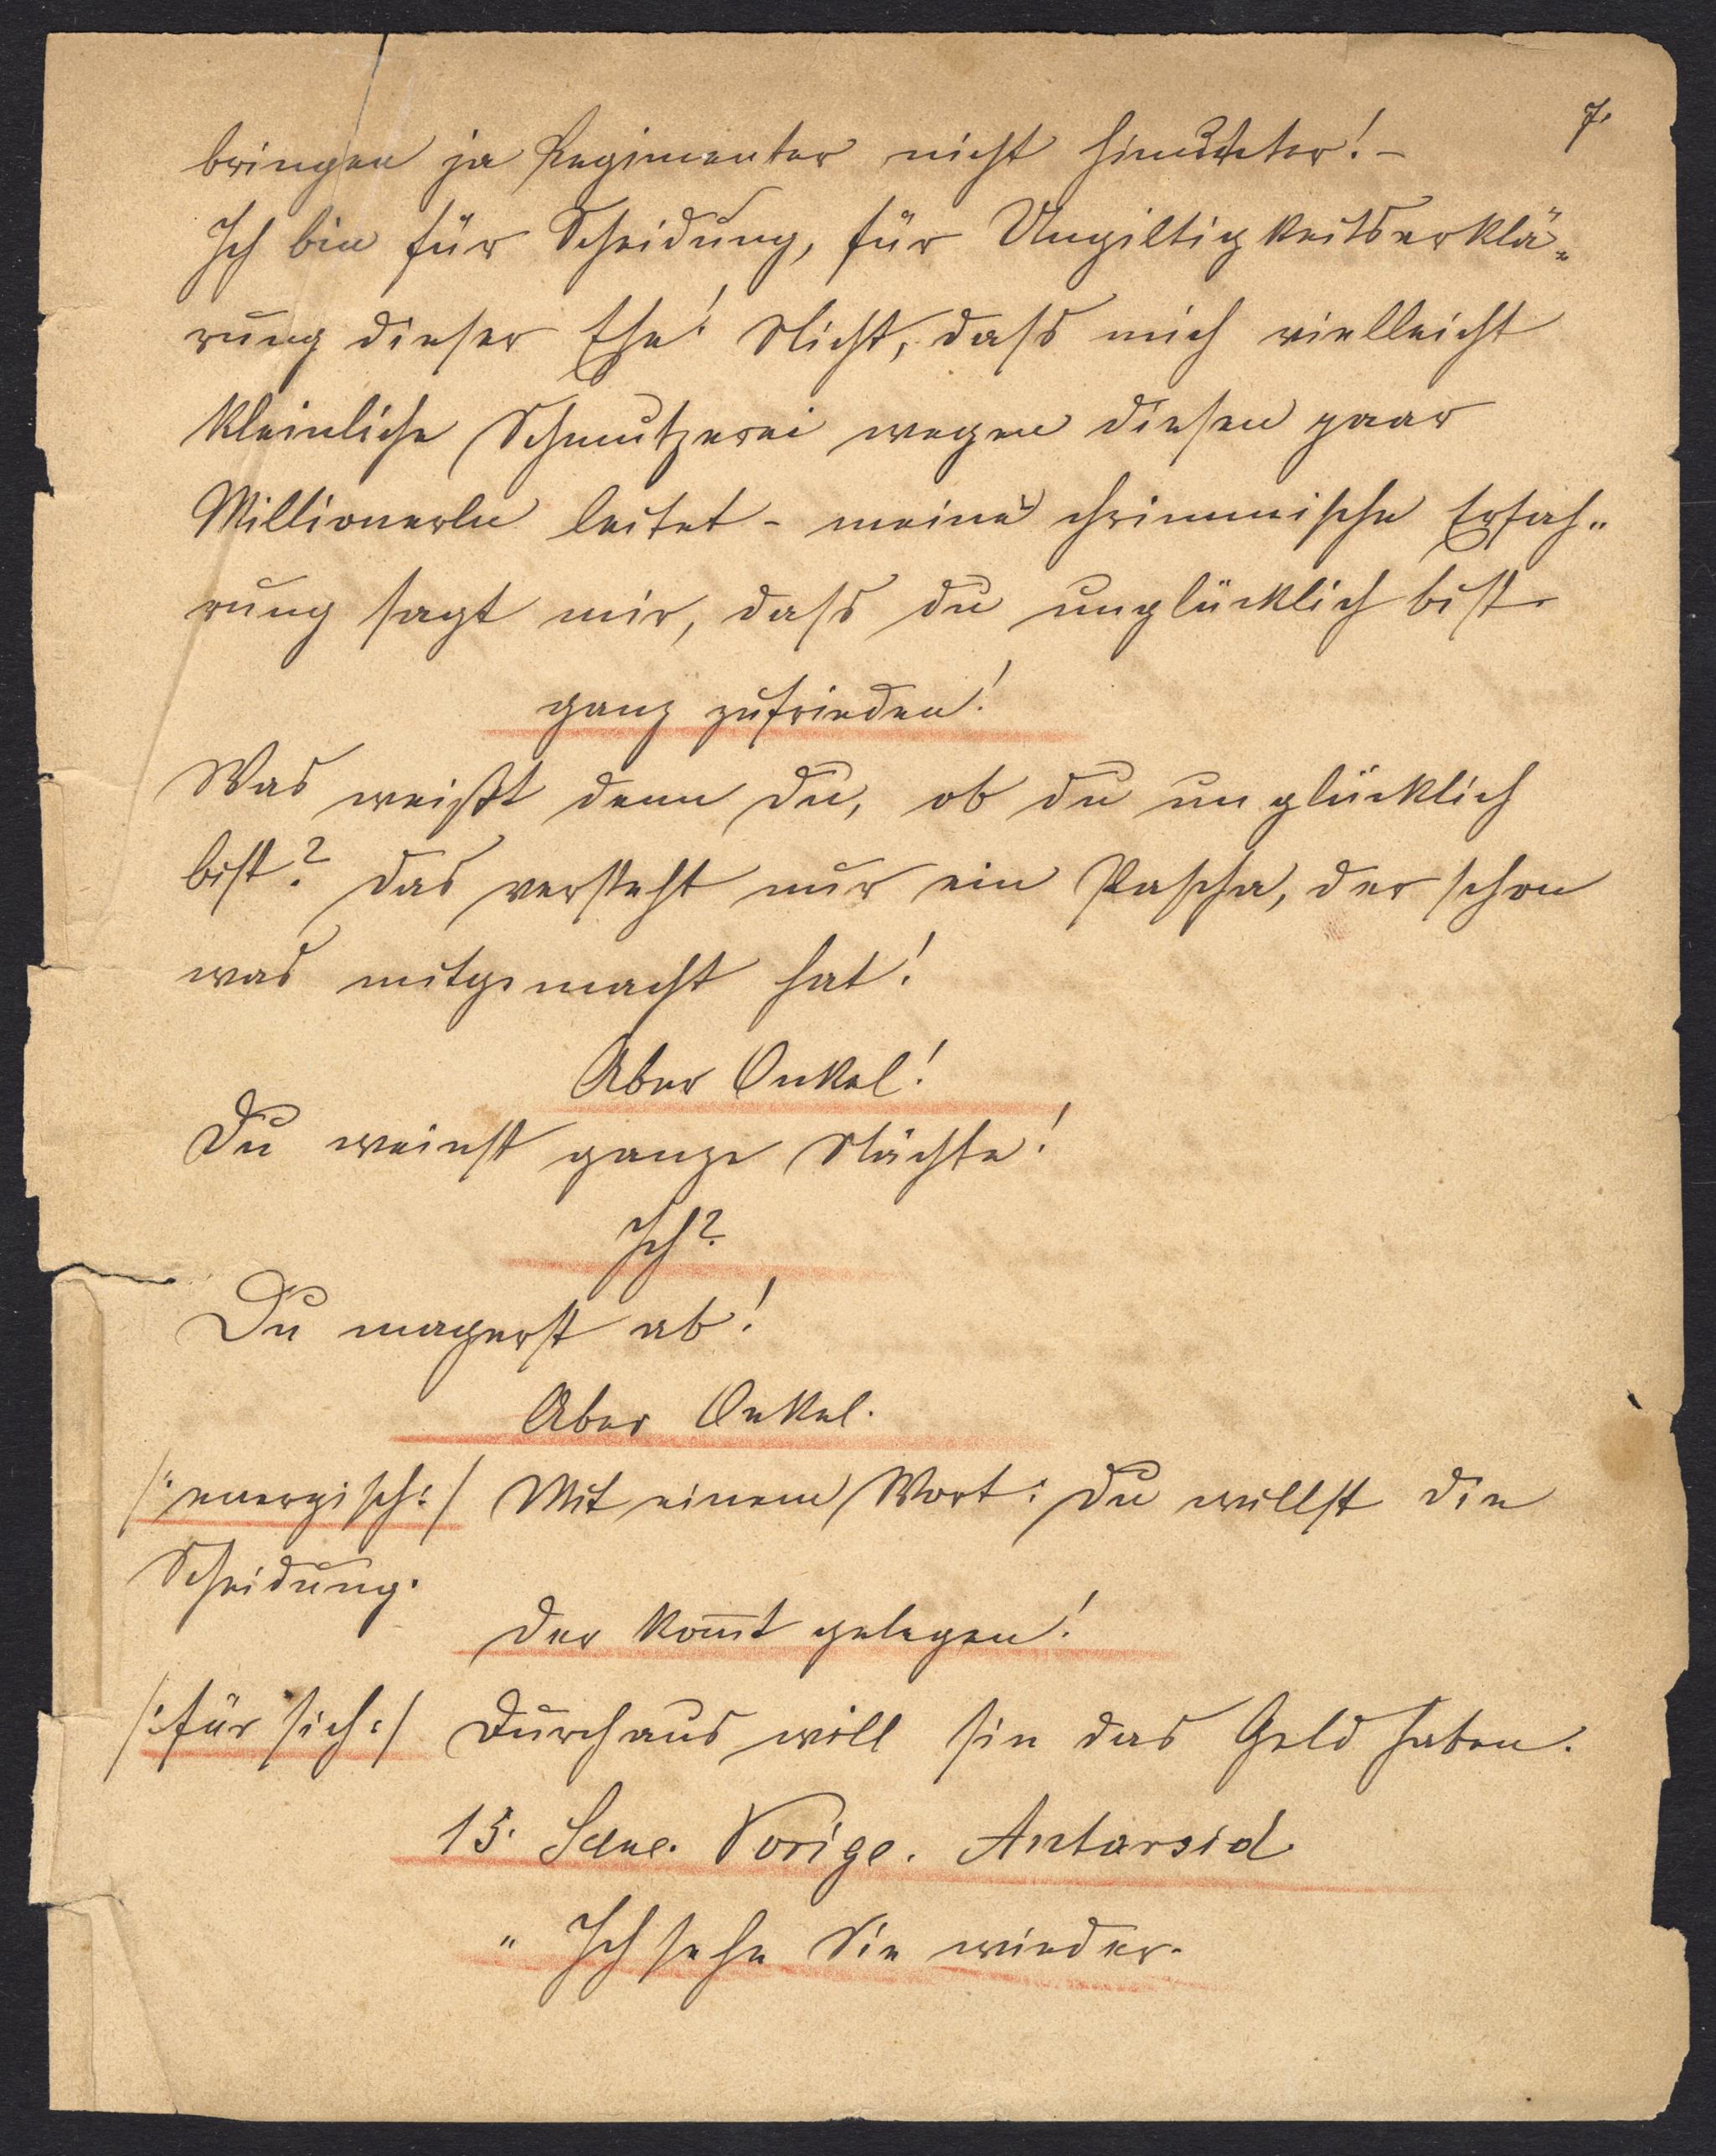 7.
bringen ja Regimenter nicht hinunter! -
Ich bin für Scheidung, für Ungiltigkeitserklä„
rung dieser Ehe! Nicht, daß mich vielleicht
kleinliche Schmutzerei wegen diesen paar
Millionerln leitet - meine Erfah„
rung sagt mir, daß du unglücklich bist
ganz zufrieden!
Was weißt denn du, ob du unglücklich
bist? das versteht nur ein Pascha, der schon
was mitgemacht hat!
Aber Onkel!
Du weinst ganze Nächte!
Ich?
Du magerst ab!
Aber Onkel.
/: energisch :/ Mit einem Wort: du willst die
Scheidung.
der kom̅t gelegen!
/: für sich :/ Durchaus will sie das Geld haben.
15. Scene. Vorige. Antarsid
„ Ich sehe Sie wieder.